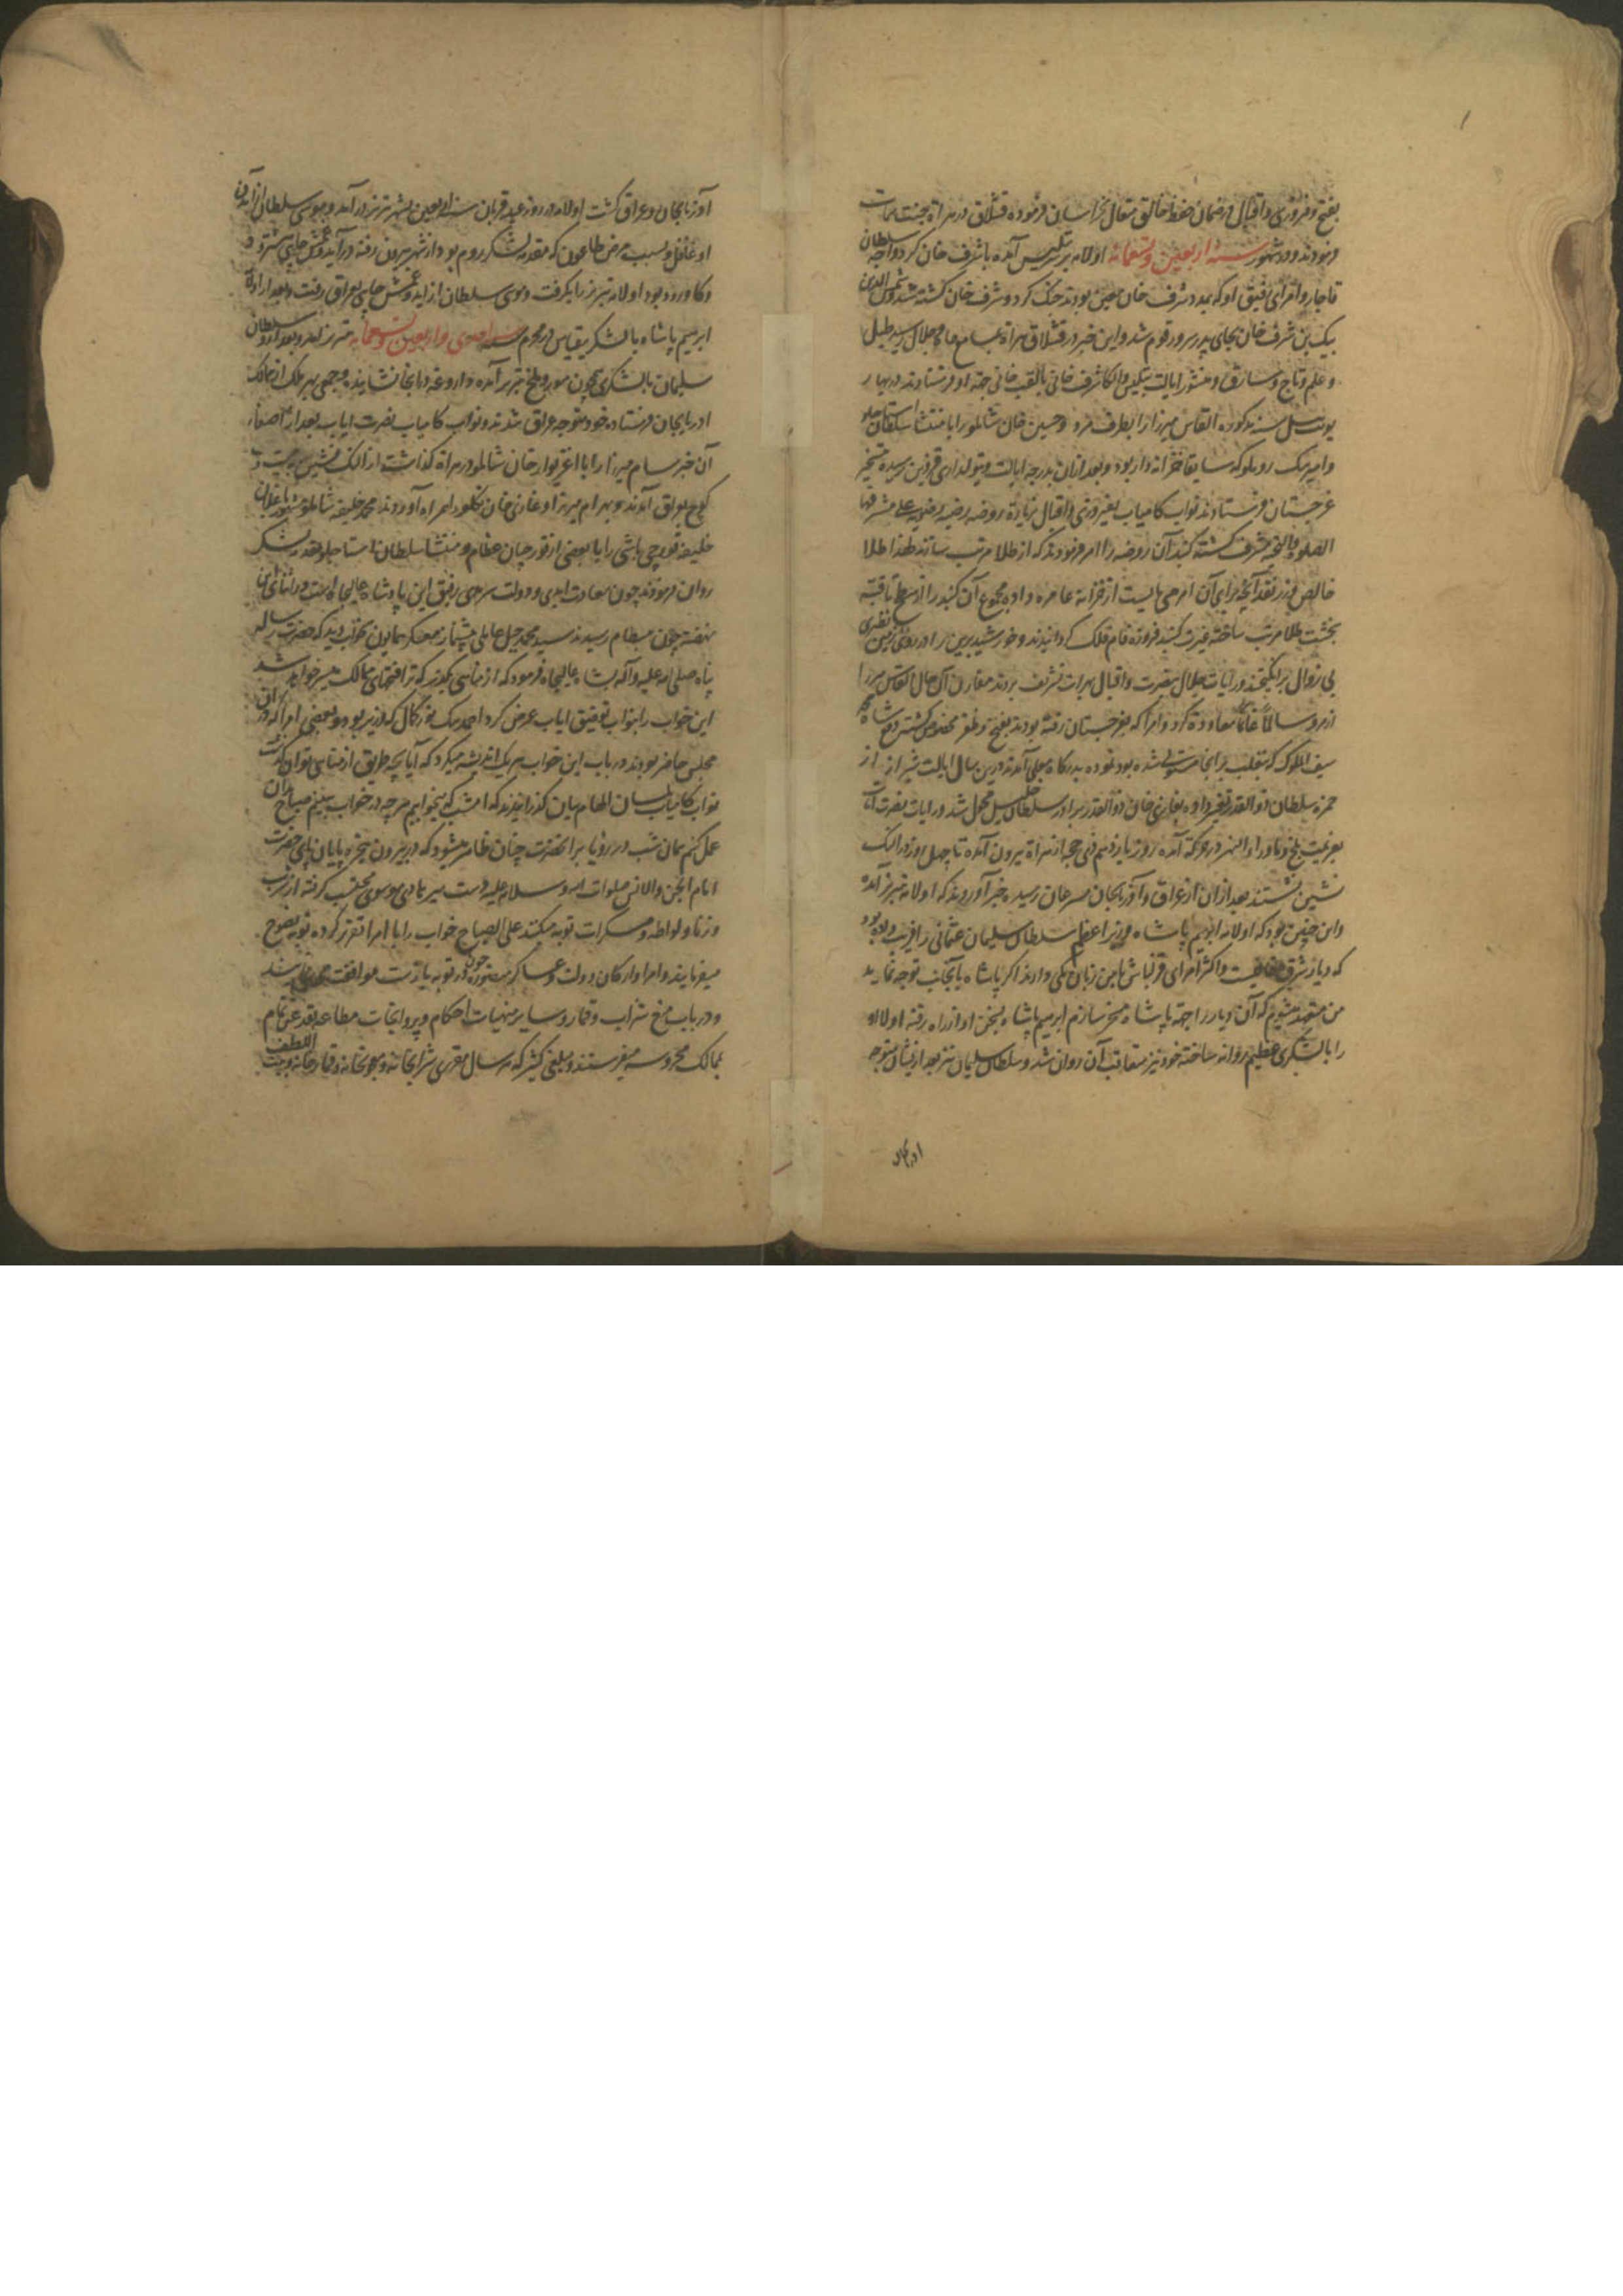 بفتح و فیروزی و اقبال در ضمان حفظ خالق متعال بخراسان فرموده قشلاق در هراة جنت سمات
فرمودند و در شهور سنه اربعین و تسعمائه اولامه بر سر تبلیس آمده با شرف خان کرد و اجه سلطان
قاجار و امرای رفیق او که بمدد شرف خان معین بودند جنک کرد و شرف خان کشته شد و شمس الدین
بیک بن شرف خان بجای پدر سرور قوم شد و این خبر در قشلاق هراة بمسامع جاه و جلال رسید طبل
و علم و تاج و منشور ایالت تبلیس و الکا شرف خانی بالقب خانی جهة او فرستادند در بهار
یونت ئیل سنه مذکوره القاس میرزا را بطرف مرو و حسین خان شاملو را با منتشا سلطان استاجلو
و امیر بیک روملو که سابقا خزانه دار بود و بعد ازان بدرجه ایالت و تیولداری قزوین رسیده بتسخیر
غرجستان فرستادند نواب کامیاب بفیروزی و اقبال بزیارة روضه رضیه رضویه علی مشرفها
الصلوة و التحیه مشرف کشته کنبد آن روضه را امر فرمودند که از طلا مرتب سازند لهذا طلا
خالص و زر نقد آنچه برای آن امر می بایست از خزانه عامره داده مجموع آن کنبد را از سطح تا قبه
بخشت طلا مرتب ساخته غیرت کنبد فیروزه فام فلک کردانیدند و خورشید برین را در روی زمین نظیری
بی زوال برانکیختند و رایات جلال بنصرت و اقبال بهرات تشریف بردند مقارن آن حال القاس میرزا
از مرو سالماً غانماً معاودة کرد و امرا که بغرجستان رفته بودند بفتح و ظفر مخصوص کشته و شاه محمد
سیف الملوک که بتغلب بر انجا مستولی شده بود بدرکاه معلی آمدند و درین سال ایالت شیراز از
حمزه سلطان ذو القدر تغییر داده بغازی خان ذو القدر برادر سلطان خلیل محول شد و رایات نصرت آیات
بعزیمت بلخ و ماوراء النهر در حرکت آمده روز یازدهم ذی حجه از هراة بیرون آمده تا چهل روز در النک
نشین نشستند بعد ازان از عراق و آذربایجان مسرعان رسیده خبر آوردند که اولامه بتبریز آمده
و این چنین بود که اولامه ابراهیم پاشا وزیر اعظم سلطان سلیمان عثمانی را فریب داده بود
که دیار شرق خالیست و اکثر امرای قزلباش با من زبان یکی دارند اکر پاشا بآنجانب توجه نماید
من متعهد میشوم که آن دیار را جهة پاشا مسخر سازم ابراهیم پاشا بسخن او از راه رفته اولامه
را با لشکری عظیم روانه ساخته خود نیز متعاقب آن روان شد و سلطان سلیمان نیز بعد از ایشان متوجه
ادربایجان
آذربایجان و عراق کشت اولامه در روز عید قربان سنه اربعین بشهر تبریز در آمد و موسی سلطان از آمدن
او غافل و بسبب مرض طاعون که مقدمه لشکر روم بود از شهر بیرون رفته
و کاورود بود اولامه تبریز را بکرفت و موسی سلطان عراق رفت و بعد از او
ابرهیم پاشا با لشکر بقیاس در محرم سنه احدی و اربعین و تسعمائه بتبریز آمد و بعد ازو سلطان
سلیمان با لشکری چون مور و ملخ بتبریز آمده داروغه در انجا نشانیده و جمعی بهر ملک از ممالک
ادربایجان فرستاده خود متوجه عراق شدند و نواب کامیاب نصرت ایاب بعد از اصغاء
آن خبر سام میرزا را با اغزیوار خان شاملو در هراة کذاشته از النک نشین به بیست و یک
کوچ بعراق آمدند و بهرام میرزا و غازی خان تکلو را همراه آوردند محمد خلیفه شاملو مشهور باغلان
خلیفه قورچی باشی را با بعضی از قورچیان عظام و منتشا سلطان استاجلو بمقدمه لشکر
روان فرمودند چون سعادت ابدی و دولت سرمدی رفیق این پادشاه عالیجاه است در اثنای این
نهضت چون ببسطام رسیدند سید محمد جبل عاملی پیشنماز معسکر همایون بخواب دید که حضرت رساله
پناه صلی الله علیه و آله بشاه عالیجاه فرمود که از مناهی بکذر که ترا فتحهای ممالک میسر خواهد شد
این خواب را بنواب توفیق ایاب عرض کرد احمد بیک نور کمال که وزیر بود و بعضی امرا که در آن
مجلس حاضر بودند در باب این خواب هریک اندیشه میکرد که آیا بچه طریق از مناهی توان کذشت
نواب کامیاب بلسان الهام بیان کذرانیدند که امشب که بخوابیم هر چه در خواب ببینیم صباح آن
عمل کنیم همان شب در رؤیا بر انحضرت چنان ظاهر میشود که در بیرون پنجره پایان پای حضرت
امام الجن و الانس صلوات الله و سلامه علیه دست میر هادی موسوی محتسب کرفته از شرب
و زنا و لواطه و مسکرات توبه میکنند علی الصباح خواب را با امرا تقریر کرده توبه نصوح
میفرمایند و امرا و ارکان دولت و عساکر منصوره در توبه با آنحضرت موافقت مینمایند
و در باب منع شراب و قمار و سایر منهیات احکام و پروانجات مطاعه بقدغن تمام
بممالک محروسه میفرستند و مبلغی کثیر که هر سال مقرری شرابخانه و بوزخانه و قمارخانه و بیت اللطف